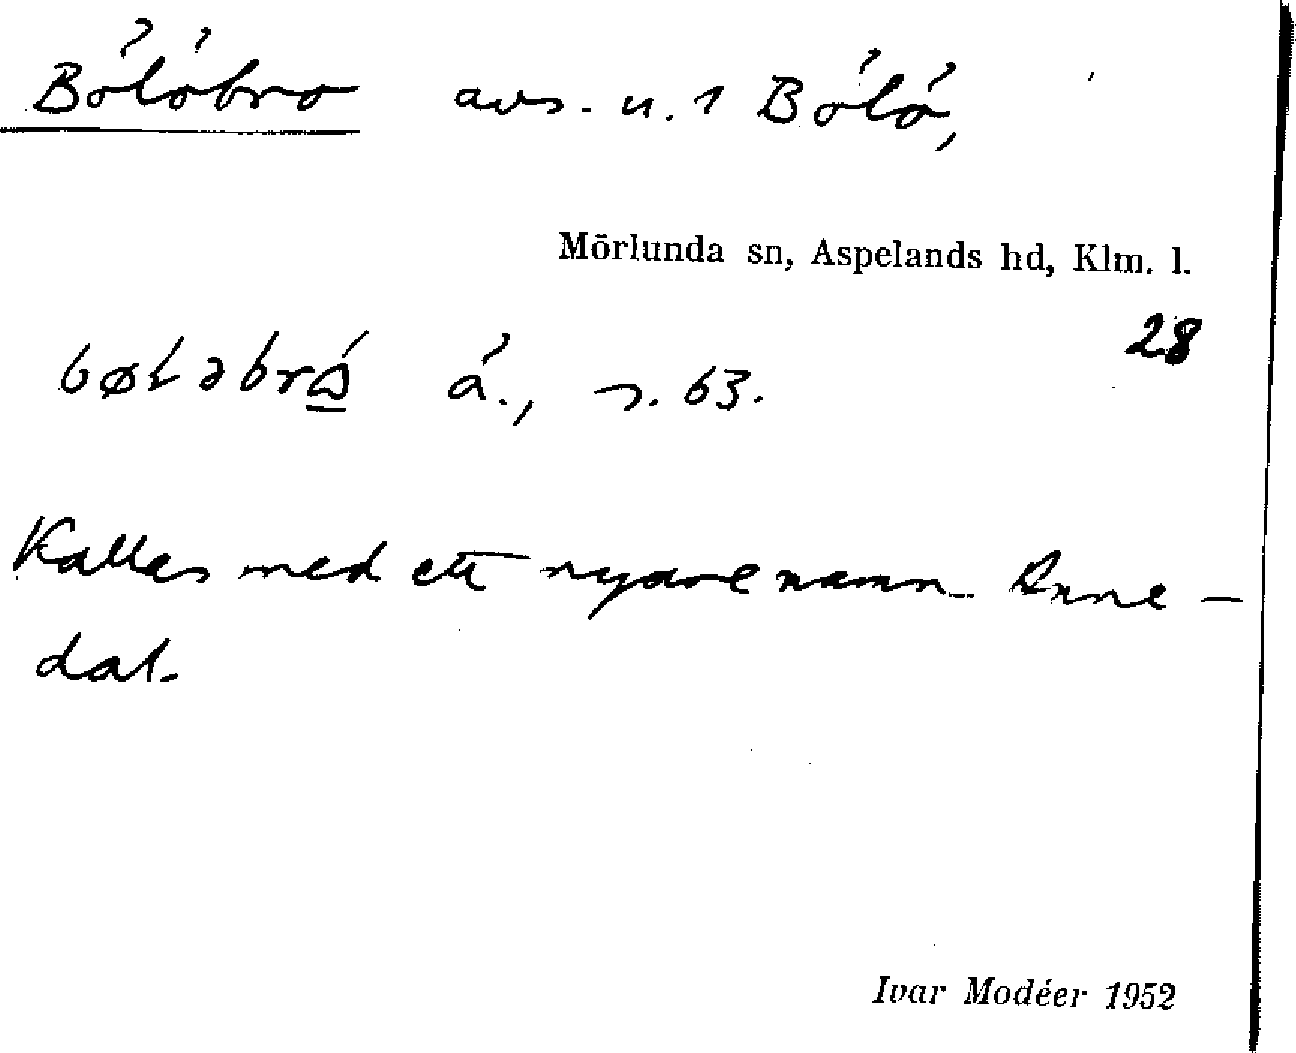 Bölöbro avs. u. 1 Bölö,
Mörlunda sn, Aspelands hd, Klm. l.
28
bøłəbrώ̲ å., s. 63.
Kallas med ett nyare namn Anne-
dal.
Ivar Modéer 1952